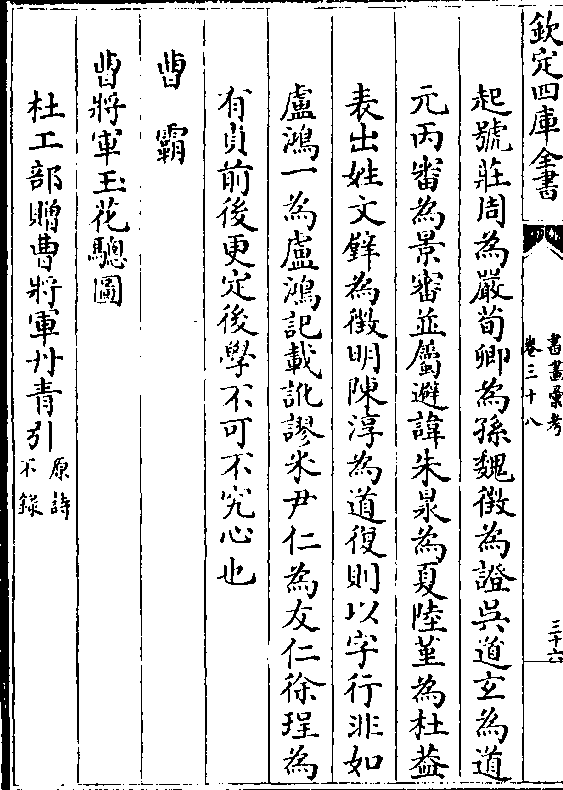 欽定四庫全書
書畫彙考
卷三十八
三十六
起號莊周為嚴荀卿為孫魏徵為證吳道玄為道
元丙審為景審並屬避諱朱泉為夏陸堇為杜葢
表出姓文璧為徵明陳淳為道復則以字行非如
盧鴻一為盧鴻記載訛謬米尹仁為友仁徐珵為
有貞前後更定後學不可不究心也
曹霸
曹將軍玉花驄圖
杜工部贈曹將軍丹青引
原詩
不錄